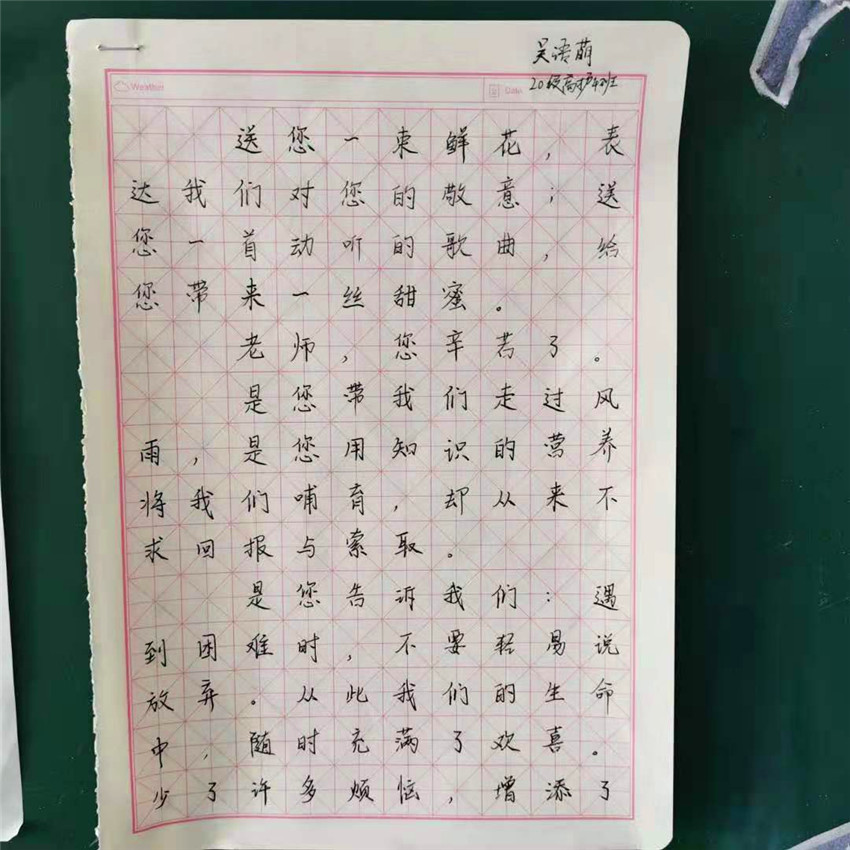 吴语萌
20级高护4班
Weather
Date
送您一束鲜花，表
达我们对您的敬意；送
您一首动听的歌曲，给
您带来一丝甜蜜。
老师，您辛苦了。
是您带我们走过风
雨，是您用知识的营养
将我们哺育，却从来不
求回报与索取。
是您告诉我们：遇
到困难时，不要轻易说
放弃。从此我们的生命
中，随时充满了欢喜。
少了许多烦恼，增添了